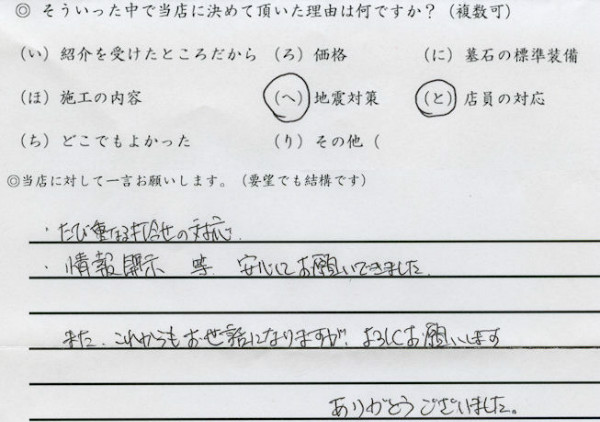 ◎ そういった中で当店に決めて頂いた理由は何ですか？（複数可）
（い）紹介を受けたところだから （ろ）価格 （に）墓石の標準装備
（ほ）施工の内容 （へ）地震対策 （と）店員の対応
（ち）どこでもよかった （り）その他（
◎当店に対して一言お願いします。（要望でも結構です）
・たび重なる打合せの対応
・情報開示 等 安心してお願いできました。
また、これからもお世話になりますが、よろしくお願いします
ありがとうございました。